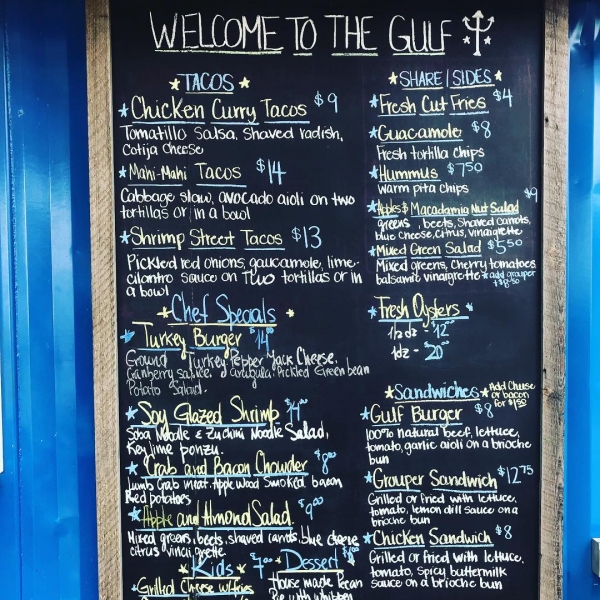 WELCOME TO THE GULF
TACOS
Chicken Curry Tacos $9
Tomatillo Salsa, Shaved radish,
Cotija Cheese
Mahi-Mahi Tacos $14
Cabbage slaw, avocado aioli on two
tortillas or in a bowl
Shrimp Street Tacos $13
Pickled red onions, guacamole, lime-
cilantro sauce on TWO tortillas or in
a bowl
Chef Specials
Turkey Burger $14
Ground Turkey, Pepper Jack Cheese,
Cranberry sauce, arugula. Pickled Green bean
Potato Salad.
Soy Glazed Shrimp $14
Soba Noodle & Zuchini Noodle Salad,
Key lime ponzu.
Crab and Bacon Chowder $8
Lumb Crab meat. Applewood Smoked bacon
Red potatoes
Apple and Almond Salad. $9
Mixed greens, beets, shaved carrots, blue cheese
citrus vinaigrette
Kids $7
Grilled Cheese w/fries
Dessert
House made Pecan
Pie with whipped
SHARE | SIDES
Fresh Cut Fries $4
Guacamole $8
Fresh tortilla chips
Hummus $7.50
Warm pita chips
Apples & Macadamia Nut Salad $9
greens, beets, shaved carrots,
blue cheese, citrus, vinaigrette
Mixed Green Salad $5.50
Mixed greens, Cherry tomatoes
balsamic vinaigrette * add grouper
Fresh Oysters
1/2 dz - 12
1 dz - 20
Sandwiches * Add Cheese
or bacon
for $1.50
Gulf Burger $8
100% natural beef, lettuce,
tomato, garlic aioli on a brioche
bun
Grouper Sandwich $12.75
Grilled or fried with lettuce,
tomato, lemon dill sauce on a
brioche bun
Chicken Sandwich $8
Grilled or fried with lettuce,
tomato, spicy buttermilk
sauce on a brioche bun